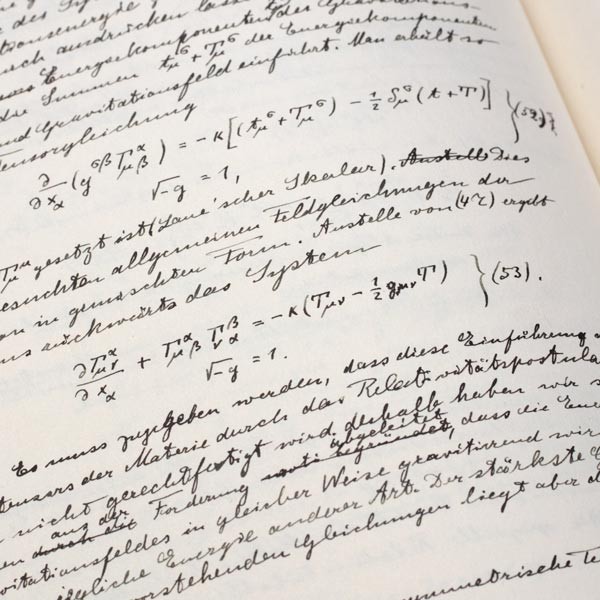 des
tionsenergie
uch ausdrücken lasse
Energiekomponenten des Gravitations-
die Summen t_μ^σ + T_μ^σ der Energiekomponenten
und Gravitationsfeld einführt. Man erhält so
Tensorgleichung
∂/∂x_α (g^{σβ} Γ_{μβ}^α) = −κ[(t_μ^σ + T_μ^σ) − ½ δ_μ^σ (t + T)] } (52),
√−g = 1,
T_μ^μ gesetzt ist (Laue'scher Skalar). Anstelle Dies
esuchten allgemeinen Feldgleichungen der
on in gemischten Form. Anstelle von (47) ergibt
us rückwärts das System
∂Γ_{μν}^α/∂x_α + Γ_{μβ}^α Γ_{να}^β = −κ(T_{μν} − ½ g_{μν} T) } (53).
√−g = 1.
Es muss zugegeben werden, dass diese Einführung
tensors der Materie durch das Relativitätspostula
nicht gerechtfertigt wird. deshalb haben wir s
abgeleitet
aus der
durch die Forderung begründet, dass die Ene
vitationsfeldes in gleicher Weise gravitirend wir
egliche Energie anderer Art. Der stärkste
vorstehenden Gleichungen liegt aber d
ymmetrische Te